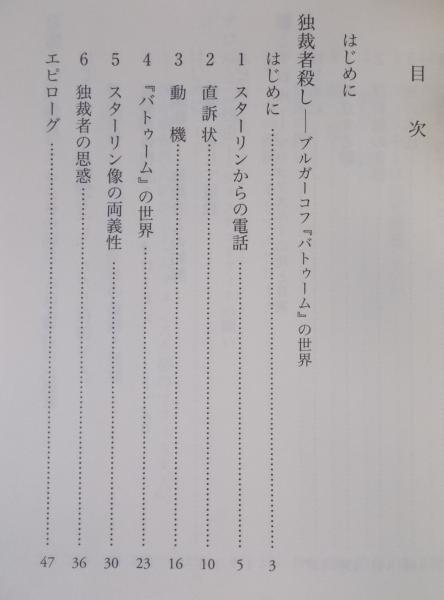 目次
はじめに
独裁者殺し──ブルガーコフ『バトゥーム』の世界
はじめに……………………………………3
1 スターリンからの電話……………………………………5
2 直訴状……………………………………10
3 動機……………………………………16
4 『バトゥーム』の世界……………………………………23
5 スターリン像の両義性……………………………………30
6 独裁者の思惑……………………………………36
エピローグ……………………………………47